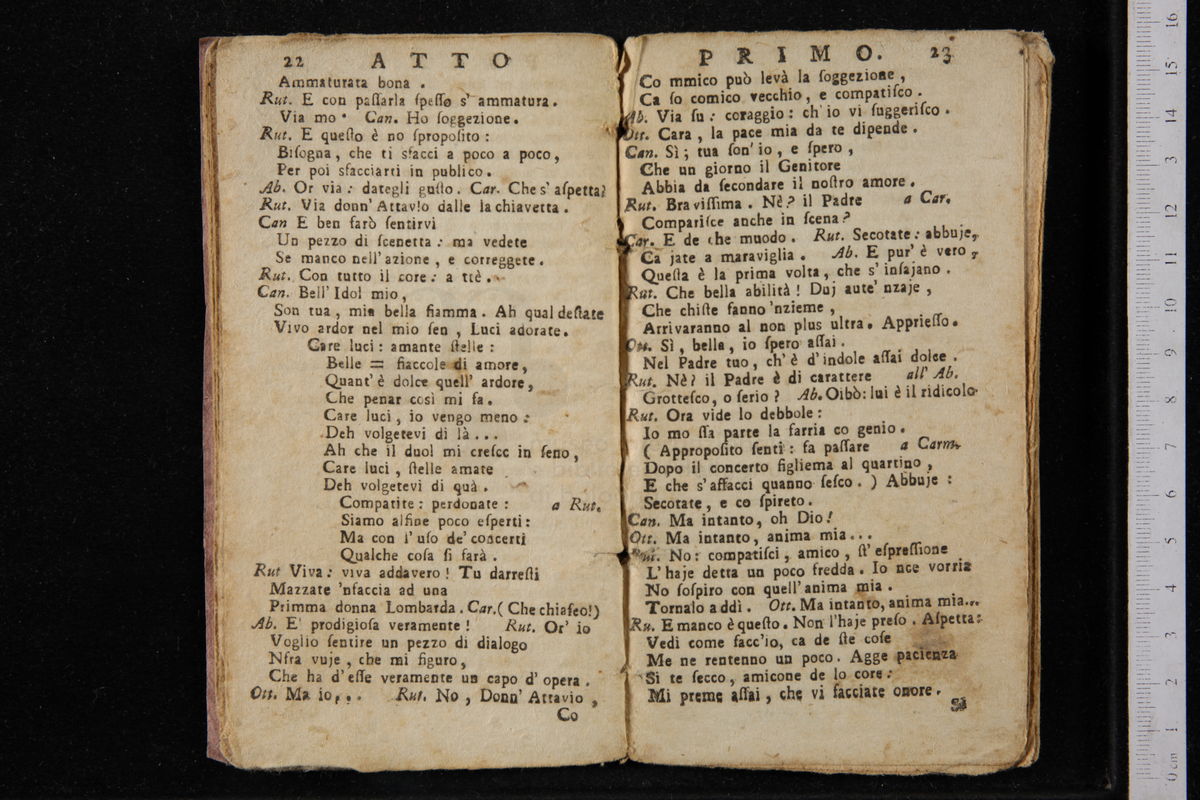 22 ATTO
Ammaturata bona .
Rut. E con paſſarla ſpeſſo s' ammatura.
Via mo . Can. Ho ſoggezione.
Rut. E queſto è no ſpropoſito :
Biſogna, che ti sfacci a poco a poco,
Per poi sfacciarti in publico .
Ab. Or via : dategli guſto. Car. Che s' aſpetta?
Rut. Via donn' Attavio dalle la chiavetta .
Can E ben farò ſentirvi
Un pezzo di ſcenetta : ma vedete
Se manco nell' azione , e correggete.
Rut. Con tutto il core : a ttè .
Can. Bell' Idol mio,
Son tua , mia bella fiamma . Ah qual deſtate
Vivo ardor nel mio ſen , Luci adorate.
Care luci : amante ſtelle :
Belle = fiaccole di amore,
Quant' è dolce quell' ardore,
Che penar così mi fa.
Care luci , io vengo meno :
Deh volgetevi di là . . .
Ah che il duol mi creſce in ſeno,
Care luci , ſtelle amate
Deh volgetevi di quà .
Compatite : perdonate : a Rut.
Siamo alfine poco eſperti :
Ma con l' uſo de' concerti
Qualche coſa ſi farà .
Rut Viva : viva addavero ! Tu darreſti
Mazzate 'nfaccia ad una
Primma donna Lombarda . Car. ( Che chiafeo! )
Ab. E' prodigioſa veramente ! Rut. Or' io
Voglio ſentire un pezzo di dialogo
Nfra vuje , che mi figuro,
Che ha d' eſſe veramente un capo d' opera .
Ott. Ma io . . . Rut. No , Donn' Attavio ,
Co
PRIMO. 23
Co mmico può levà la ſoggezione ,
Ca ſo comico vecchio , e compatiſco .
Ab. Via ſu : coraggio : ch' io vi ſuggeriſco .
Ott. Cara , la pace mia da te dipende .
Can. Sì ; tua ſon' io , e ſpero ,
Che un giorno il Genitore
Abbia da ſecondare il noſtro amore .
Rut. Bra viſſima . Nè ? il Padre a Car.
Compariſce anche in ſcena ?
Car. E de che muodo . Rut. Secotate : abbuje,
Ca jate a maraviglia . Ab. E pur' è vero ,
Queſta è la prima volta , che s' inſajano .
Rut. Che bella abilità ! Duj aute' nzaje ,
Che chiſte fanno 'nzieme ,
Arrivaranno al non plus ultra . Apprieſſo .
Ott. Sì , bella , io ſpero aſſai .
Nel Padre tuo , ch' è d' indole aſſai dolce .
Rut. Nè ? il Padre è di carattere all' Ab.
Grotteſco, o ſerio ? Ab. Oibò : lui è il ridicolo
Rut. Ora vide lo debbole :
Io mo ſſa parte la farria co genio .
( Appropoſito ſenti : fa paſſare a Carm.
Dopo il concerto figliema al quartino ,
E che s' affacci quanno ſeſco . ) Abbuje :
Secotate , e co ſpireto .
Can. Ma intanto, oh Dio !
Ott. Ma intanto , anima mia . . .
Rut. No : compatiſci , amico , ſt' eſpreſſione
L' haje detta un poco fredda . Io nce vorria
No ſoſpiro con quell' anima mia .
Tornalo a ddì . Ott. Ma intanto, anima mia...
Ru. E manco è queſto . Non l'haje preſo . Aſpetta:
Vedi come facc'io, ca de ſte coſe
Me ne rentenno un poco . Agge pacienza
Si te ſecco , amicone de lo core :
Mi preme aſſai , che vi facciate onore .